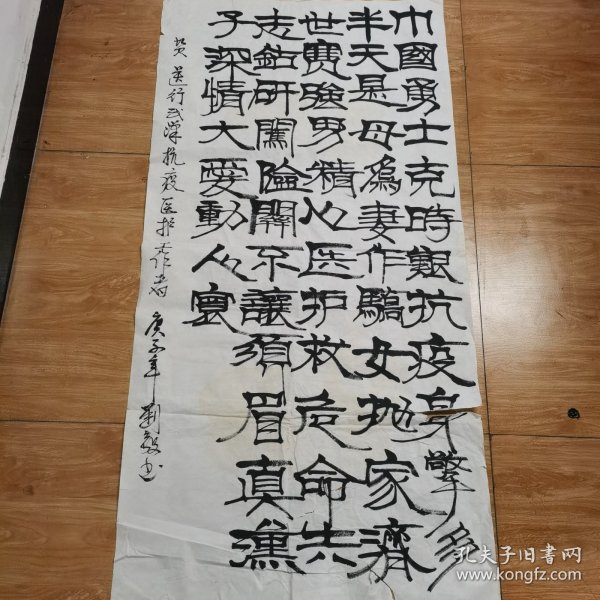 巾國勇士克時艱抗疫身擎多
半天是母為妻作驕女抛家濟
世賽強男精心医护救危命共
志鉆研闖險關不讓須眉真漢
子深情大愛動人寰
贊逆行武漢抗疫医护工作者 庚子年 劉毅书
孔夫子旧書网
www.kongfz.com